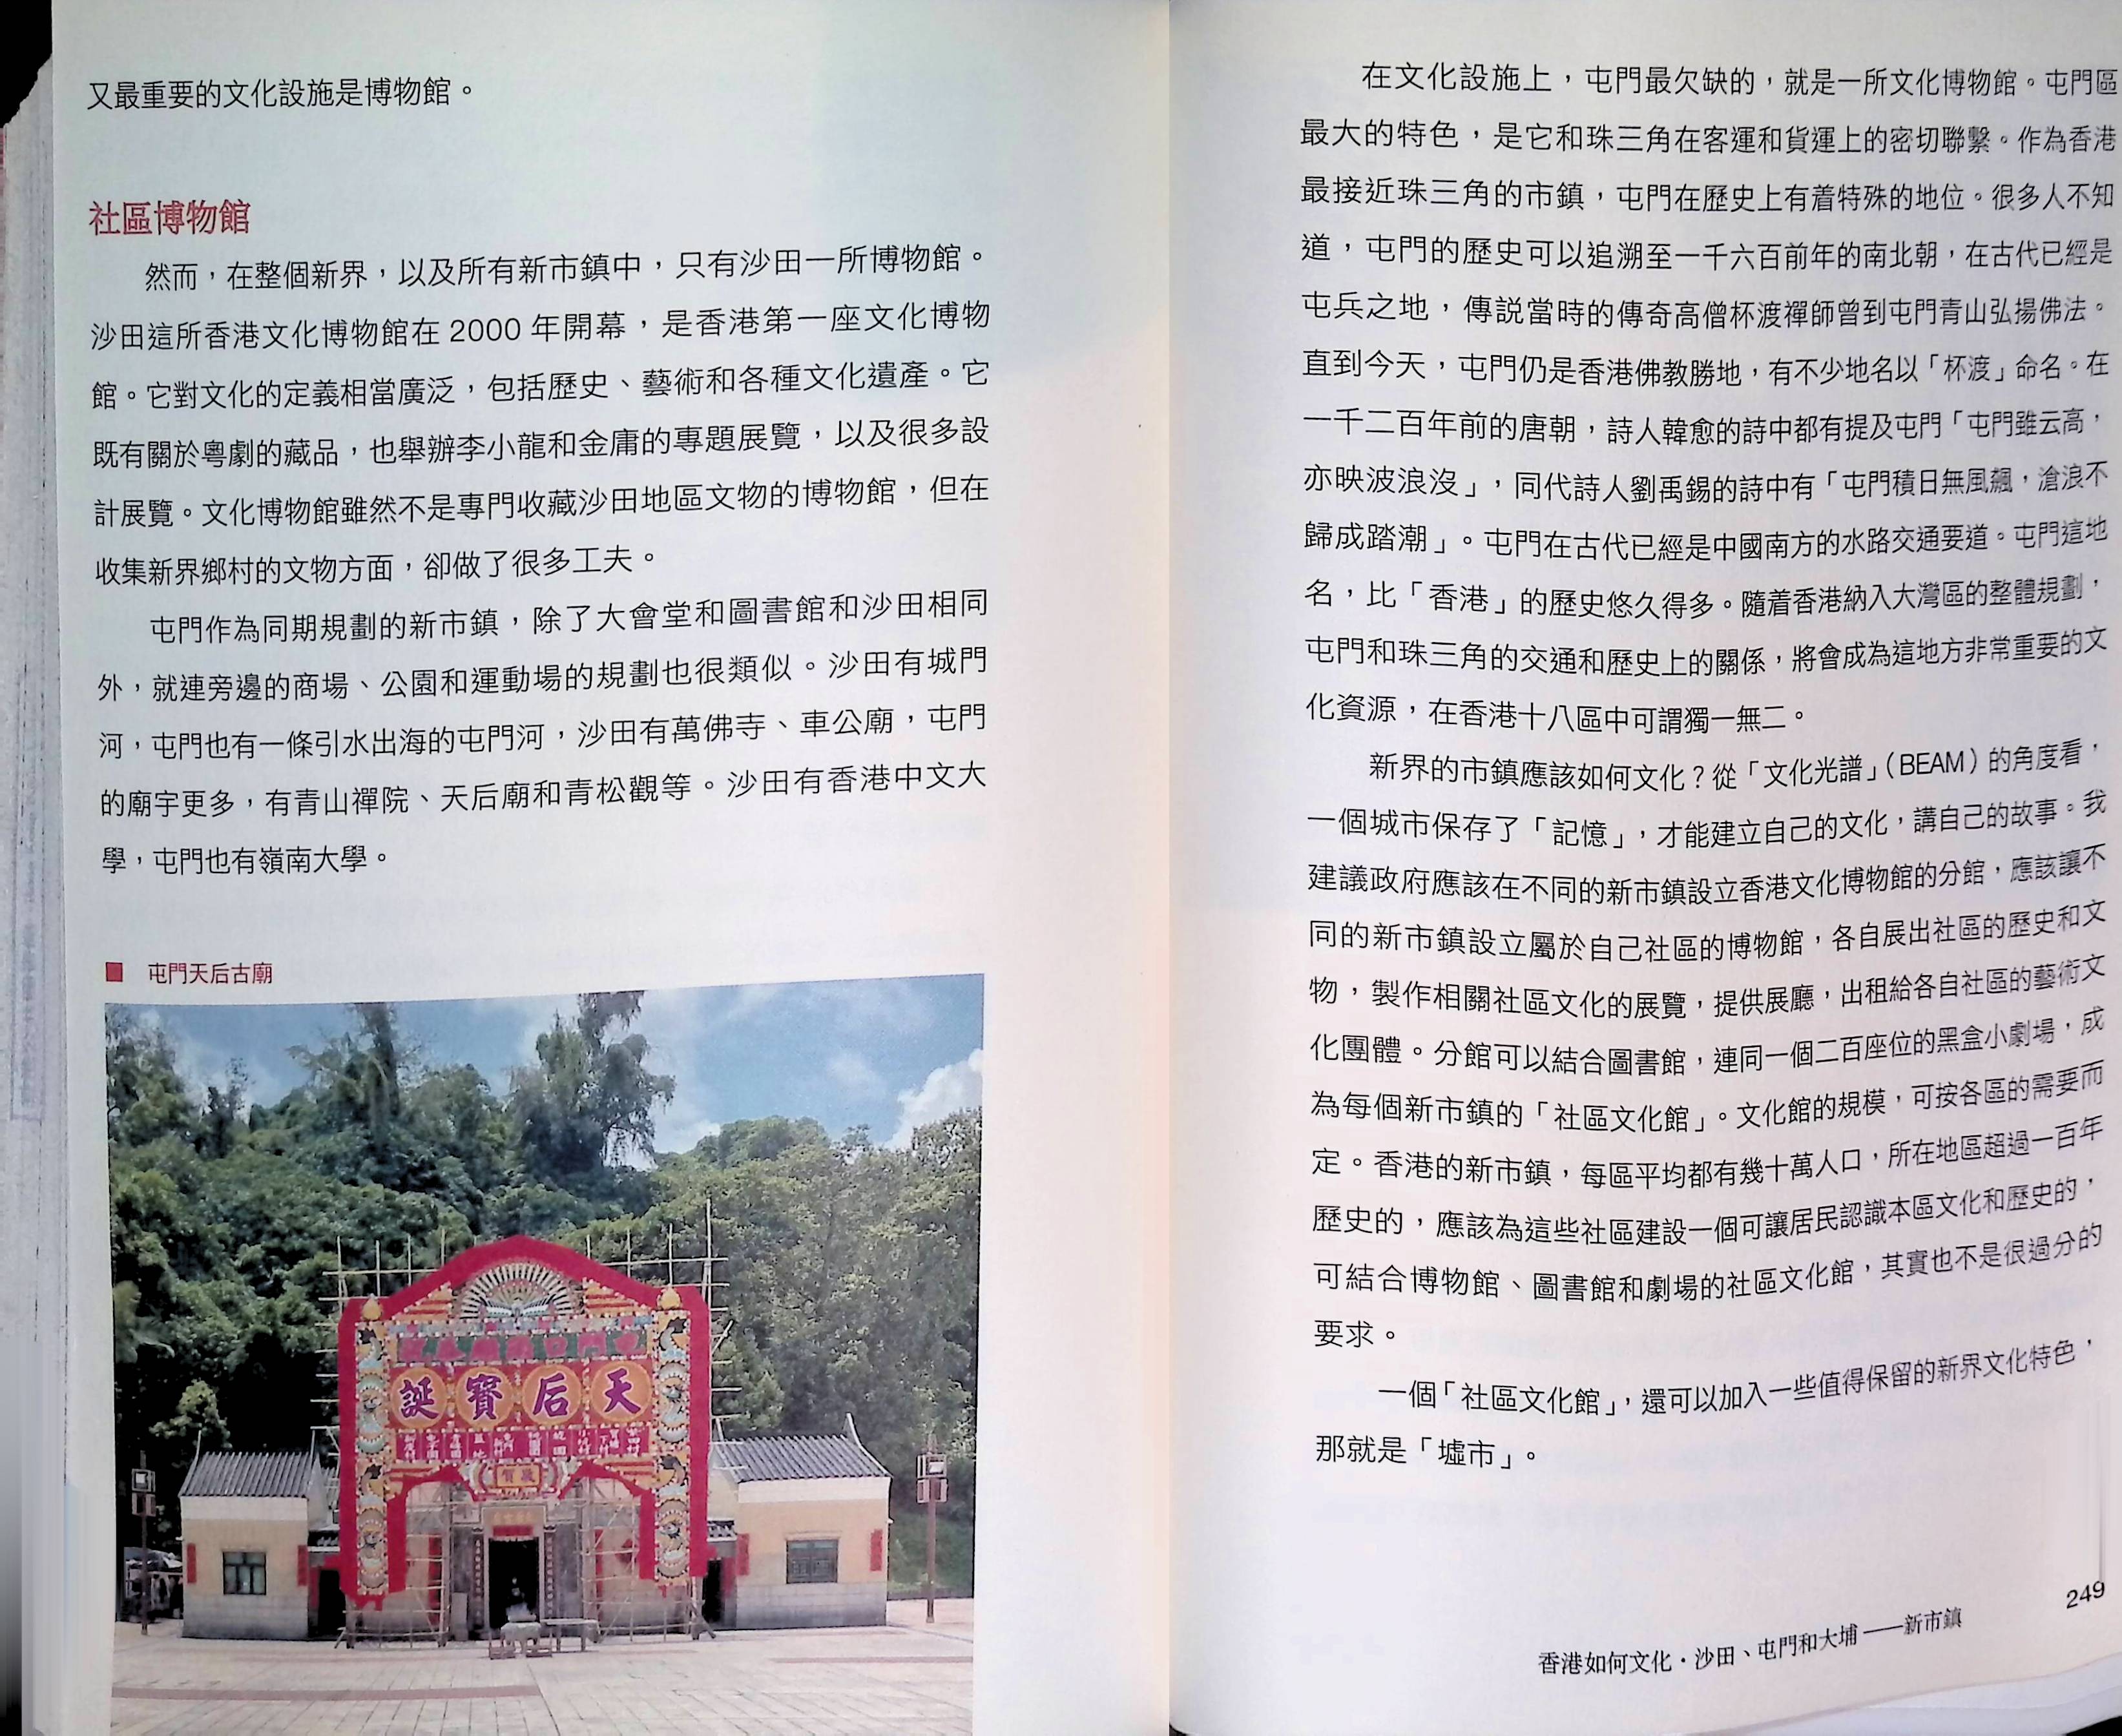 又最重要的文化設施是博物館。
社區博物館
然而，在整個新界，以及所有新市鎮中，只有沙田一所博物館。
沙田這所香港文化博物館在 2000 年開幕，是香港第一座文化博物
館。它對文化的定義相當廣泛，包括歷史、藝術和各種文化遺產。它
既有關於粵劇的藏品，也舉辦李小龍和金庸的專題展覽，以及很多設
計展覽。文化博物館雖然不是專門收藏沙田地區文物的博物館，但在
收集新界鄉村的文物方面，卻做了很多工夫。
屯門作為同期規劃的新市鎮，除了大會堂和圖書館和沙田相同
外，就連旁邊的商場、公園和運動場的規劃也很類似。沙田有城門
河，屯門也有一條引水出海的屯門河，沙田有萬佛寺、車公廟，屯門
的廟宇更多，有青山禪院、天后廟和青松觀等。沙田有香港中文大
學，屯門也有嶺南大學。
■ 屯門天后古廟
誕寶后天
在文化設施上，屯門最欠缺的，就是一所文化博物館。屯門區
最大的特色，是它和珠三角在客運和貨運上的密切聯繫。作為香港
最接近珠三角的市鎮，屯門在歷史上有着特殊的地位。很多人不知
道，屯門的歷史可以追溯至一千六百前年的南北朝，在古代已經是
屯兵之地，傳説當時的傳奇高僧杯渡禪師曾到屯門青山弘揚佛法。
直到今天，屯門仍是香港佛教勝地，有不少地名以「杯渡」命名。在
一千二百年前的唐朝，詩人韓愈的詩中都有提及屯門「屯門雖云高，
亦映波浪沒」，同代詩人劉禹錫的詩中有「屯門積日無風飆，滄浪不
歸成踏潮」。屯門在古代已經是中國南方的水路交通要道。屯門這地
名，比「香港」的歷史悠久得多。隨着香港納入大灣區的整體規劃，
屯門和珠三角的交通和歷史上的關係，將會成為這地方非常重要的文
化資源，在香港十八區中可謂獨一無二。
新界的市鎮應該如何文化？從「文化光譜」（BEAM）的角度看，
一個城市保存了「記憶」，才能建立自己的文化，講自己的故事。我
建議政府應該在不同的新市鎮設立香港文化博物館的分館，應該讓不
同的新市鎮設立屬於自己社區的博物館，各自展出社區的歷史和文
物，製作相關社區文化的展覽，提供展廳，出租給各自社區的藝術文
化團體。分館可以結合圖書館，連同一個二百座位的黑盒小劇場，成
為每個新市鎮的「社區文化館」。文化館的規模，可按各區的需要而
定。香港的新市鎮，每區平均都有幾十萬人口，所在地區超過一百年
歷史的，應該為這些社區建設一個可讓居民認識本區文化和歷史的，
可結合博物館、圖書館和劇場的社區文化館，其實也不是很過分的
要求。
一個「社區文化館」，還可以加入一些值得保留的新界文化特色，
那就是「墟市」。
249
香港如何文化・沙田、屯門和大埔——新市鎮